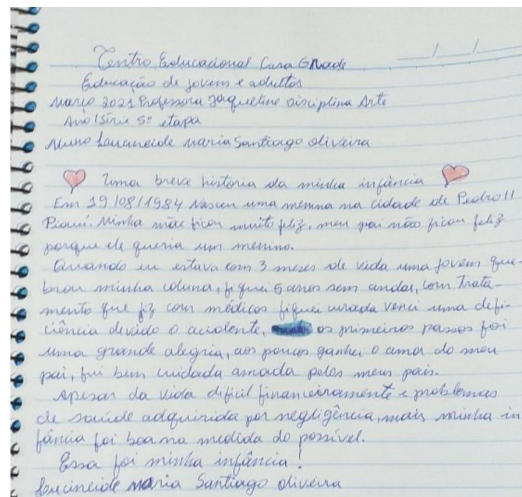 Centro Educacional Casa Grande
Educação de jovens e adultos
Março 2021 Professora Jaqueline disciplina Arte
Ano/Série 5ª etapa
Aluno Leucineide Maria Santiago oliveira
Uma breve história da minha infância
Em 19/08/1984 Nasceu uma menina na cidade de Pedro II
Piauí. Minha mãe ficou muito feliz, meu pai não ficou feliz
porque ele queria um menino.
Quando eu estava com 3 meses de vida uma jovem que-
brou minha coluna, fiquei 5 anos sem andar, com trata-
mento que fiz com médicos fiquei curada venci uma defi-
ciência devido o acidente, os primeiros passos foi
uma grande alegria, aos poucos ganhei o amor do meu
pai, fui bem cuidada amada pelos meus pais.
Apesar da vida difícil financeiramente e problemas
de saúde adquirida por negligência, mais minha in
fância foi boa na medida do possível.
Essa foi minha infância!
Leucineide Maria Santiago oliveira